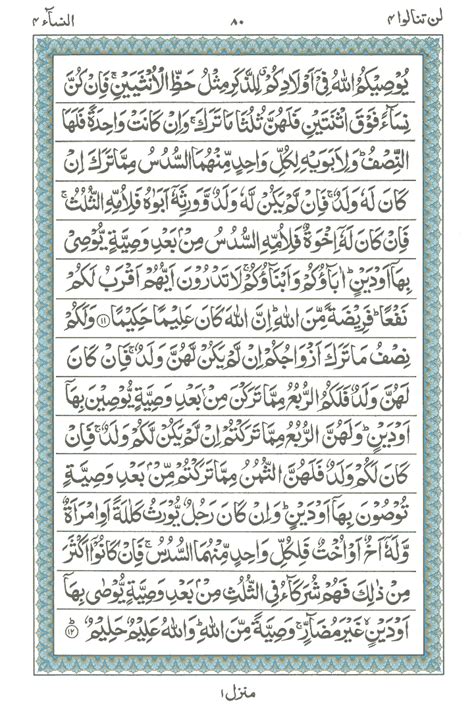 لن تنالوا ۴ ۸۰ النسآء ۴
يُوْصِيْكُمُ اللّٰهُ فِيْۤ اَوْلَادِكُمْ ۗ لِلذَّكَرِ مِثْلُ حَظِّ الْاُنْثَيَيْنِ ۚ فَاِنْ كُنَّ
نِسَآءً فَوْقَ اثْنَتَيْنِ فَلَهُنَّ ثُلُثَا مَا تَرَكَ ۚ وَاِنْ كَانَتْ وَاحِدَةً فَلَهَا
النِّصْفُ ؕ وَلِاَبَوَيْهِ لِكُلِّ وَاحِدٍ مِّنْهُمَا السُّدُسُ مِمَّا تَرَكَ اِنْ
كَانَ لَهٗ وَلَدٌ ۚ فَاِنْ لَّمْ يَكُنْ لَّهٗ وَلَدٌ وَّوَرِثَهٗۤ اَبَوٰهُ فَلِاُمِّهِ الثُّلُثُ ۚ
فَاِنْ كَانَ لَهٗۤ اِخْوَةٌ فَلِاُمِّهِ السُّدُسُ مِنْۢ بَعْدِ وَصِيَّةٍ يُّوْصِيْ
بِهَاۤ اَوْ دَيْنٍ ؕ اٰبَآؤُكُمْ وَاَبْنَآؤُكُمْ ۚ لَا تَدْرُوْنَ اَيُّهُمْ اَقْرَبُ لَكُمْ
نَفْعًا ؕ فَرِيْضَةً مِّنَ اللّٰهِ ؕ اِنَّ اللّٰهَ كَانَ عَلِيْمًا حَكِيْمًا ﴿۱۱﴾ وَلَكُمْ
نِصْفُ مَا تَرَكَ اَزْوَاجُكُمْ اِنْ لَّمْ يَكُنْ لَّهُنَّ وَلَدٌ ۚ فَاِنْ كَانَ
لَهُنَّ وَلَدٌ فَلَكُمُ الرُّبُعُ مِمَّا تَرَكْنَ مِنْۢ بَعْدِ وَصِيَّةٍ يُّوْصِيْنَ بِهَاۤ
اَوْ دَيْنٍ ؕ وَلَهُنَّ الرُّبُعُ مِمَّا تَرَكْتُمْ اِنْ لَّمْ يَكُنْ لَّكُمْ وَلَدٌ ۚ فَاِنْ
كَانَ لَكُمْ وَلَدٌ فَلَهُنَّ الثُّمُنُ مِمَّا تَرَكْتُمْ مِّنْۢ بَعْدِ وَصِيَّةٍ
تُوْصُوْنَ بِهَاۤ اَوْ دَيْنٍ ؕ وَاِنْ كَانَ رَجُلٌ يُّوْرَثُ كَلٰلَةً اَوِ امْرَاَةٌ
وَّلَهٗۤ اَخٌ اَوْ اُخْتٌ فَلِكُلِّ وَاحِدٍ مِّنْهُمَا السُّدُسُ ۚ فَاِنْ كَانُوْۤا اَكْثَرَ
مِنْ ذٰلِكَ فَهُمْ شُرَكَآءُ فِي الثُّلُثِ مِنْۢ بَعْدِ وَصِيَّةٍ يُّوْصٰى بِهَاۤ
اَوْ دَيْنٍ ۙ غَيْرَ مُضَآرٍّ ۚ وَصِيَّةً مِّنَ اللّٰهِ ؕ وَاللّٰهُ عَلِيْمٌ حَلِيْمٌ ﴿۱۲﴾
منزل ۱